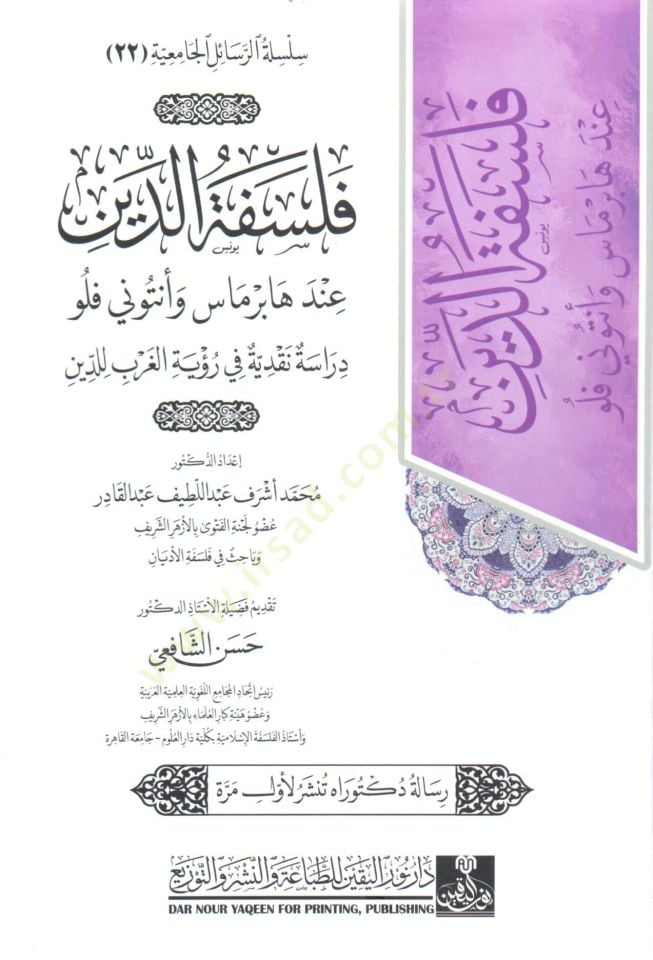 سِلْسِلَةُ الرَّسَائِلِ الْجَامِعِيَّةِ (٢٢)
فَلْسَفَةُ الدِّينِ
يونس
عِنْدَ هَابِرْمَاس وَأَنْتُونِي فلُو
دِرَاسَةٌ نَقْدِيَّةٌ فِي رُؤْيَةِ الغَرْبِ لِلدِّينِ
إعْدَادُ الدُّكْتُور
مُحَمَّد أَشْرَف عَبْد اللَّطِيف عَبْد القَادِر
عُضْوُ لَجْنَةِ الفَتْوَى بِالأَزْهَرِ الشَّرِيفِ
وَبَاحِثٌ فِي فَلْسَفَةِ الأَدْيَانِ
تَقْدِيمُ فَضِيلَةِ الأُسْتَاذِ الدكتُور
حَسَن الشَّافِعِيّ
رَئِيسِ اتِّحَادِ المَجَامِعِ اللُّغَوِيَّةِ العِلْمِيَّةِ العَرَبِيَّةِ
وَعُضْوِ هَيْئَةِ كِبَارِ العُلَمَاءِ بِالأَزْهَرِ الشَّرِيفِ
وَأُسْتَاذِ الفَلْسَفَةِ الإِسْلَامِيَّةِ بِكُلِّيَّةِ دَارِ العُلُومِ - جَامِعَةِ القَاهِرَةِ
رِسَالَةُ دُكْتُورَاه تُنْشَرُ لِأَوَّلِ مَرَّة
دار نور اليقين للطباعة والنشر والتوزيع
DAR NOUR YAQEEN FOR PRINTING, PUBLISHING
نور اليقين
فَلْسَفَةُ الدِّينِ
يونس
عِنْدَ هَابِرْمَاس وَأَنْتُونِي فلُو
www.irsad.com.tr